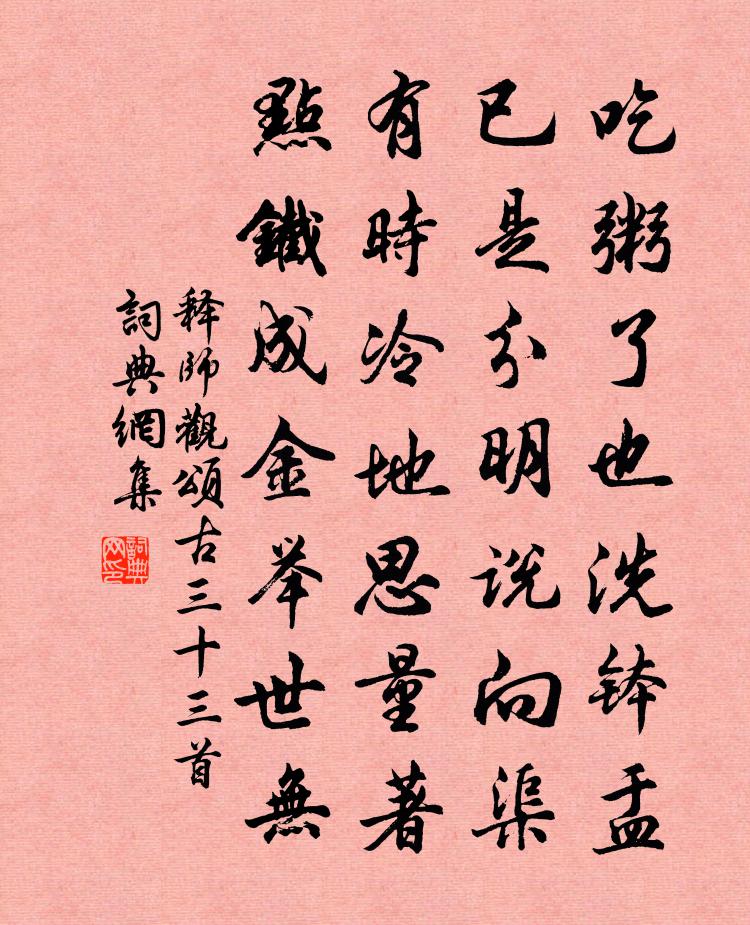 吃粥了也洗钵盂
已是分明说向渠
有時冷地思量著
點鐵成金举世無
释師觀頌古三十三首
詞典網集
詞典网印